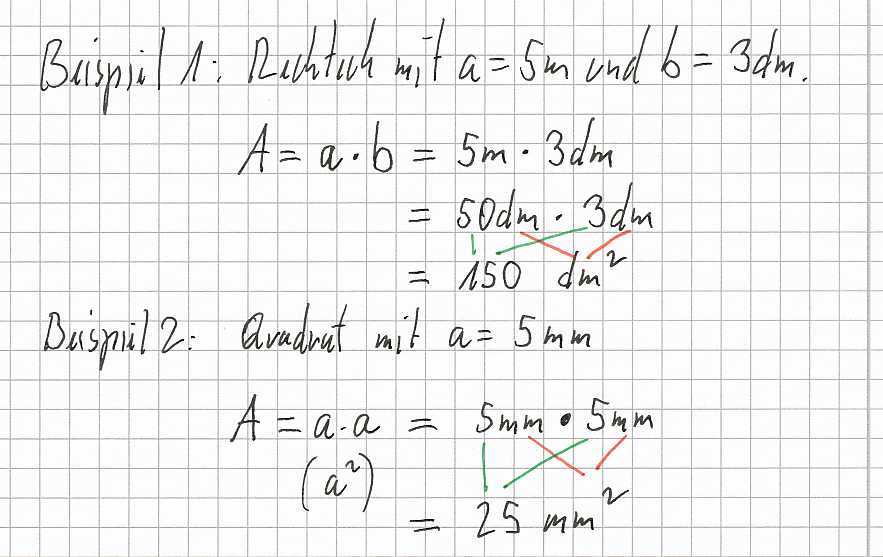 Beispiel 1: Rechteck mit a = 5m und b = 3dm.
A = a · b = 5m · 3dm
= 50dm · 3dm
= 150 dm²
Beispiel 2: Quadrat mit a = 5mm
A = a · a = 5mm · 5mm
(a²)
= 25 mm²